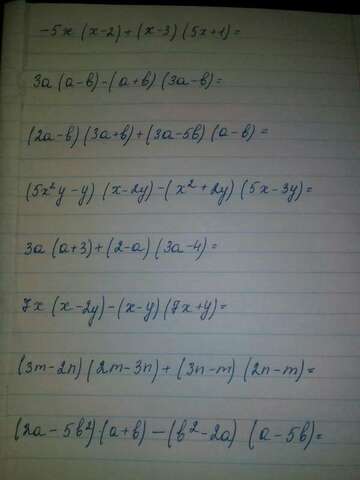 -5x (x-2)+(x-3) (5x+1)=
3a (a-b)-(a+b) (3a-b)=
(2a-b) (3a+b)+(3a-5b) (a-b)=
(5x²y-y) (x-2y)-(x²+2y) (5x-3y)=
3a (a+3)+(2-a) (3a-4)=
7x (x-2y)-(x-y) (7x+y)=
(3m-2n) (2m-3n)+(3n-m) (2n-m)=
(2a-5b²)·(a+b)-(b²-2a) (a-5b)=